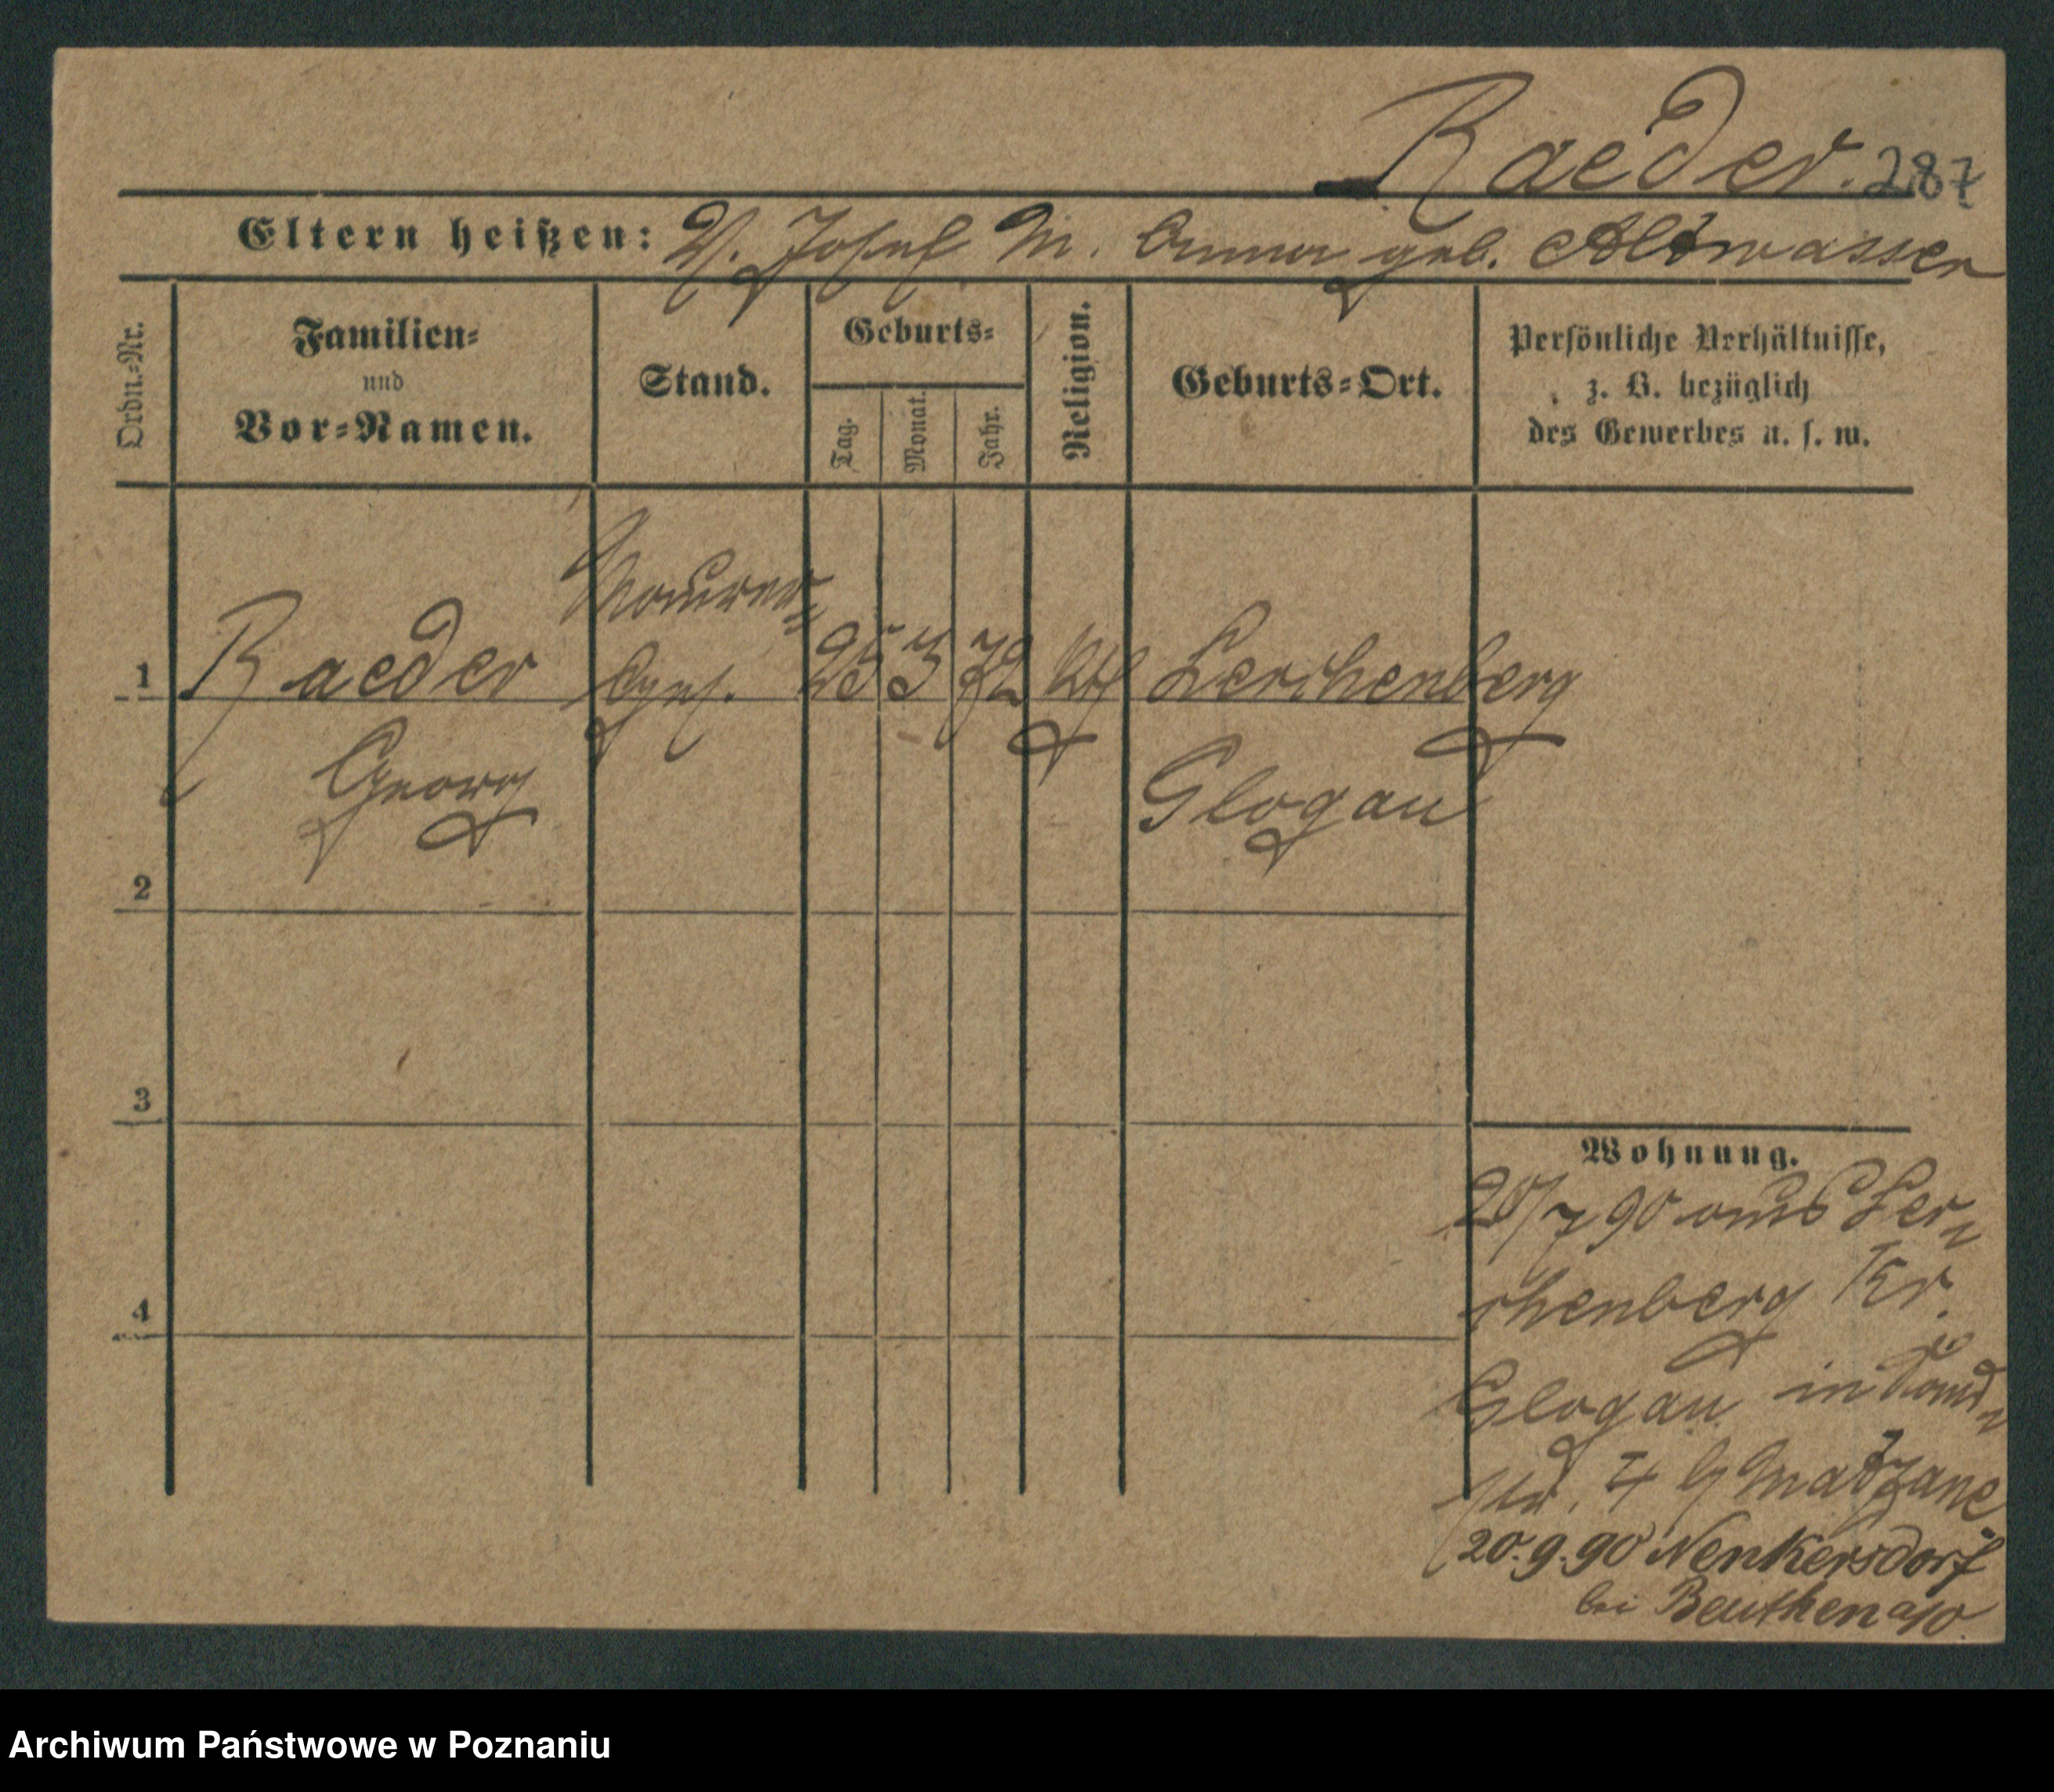 Raeder. 287
Eltern heißen: V. Josef M. Anna geb. Altwasser
Ordn.-Nr.
Familien-
und
Vor-Namen.
Stand.
Geburts-
Tag.
Monat.
Jahr.
Religion.
Geburts-Ort.
Persönliche Verhältnisse,
z. B. bezüglich
des Gewerbes u. s. w.
Maurer-
1 Raeder 25 3 72 kth Lerchenberg
Georg Glogau
2
3
4
Wohnung.
20/7 90 aus Ler-
chenberg Kr.
Glogau in
str. 4 b Matzane
20.9.90 Nenkersdorf
bei Beuthen a/O.
Archiwum Państwowe w Poznaniu